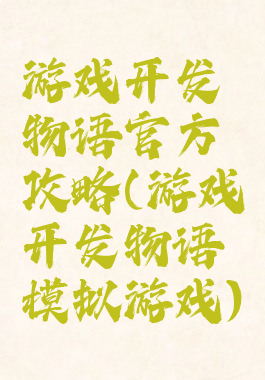 游戏开发
物语官方
攻略(游戏
开发物语
模拟游戏)